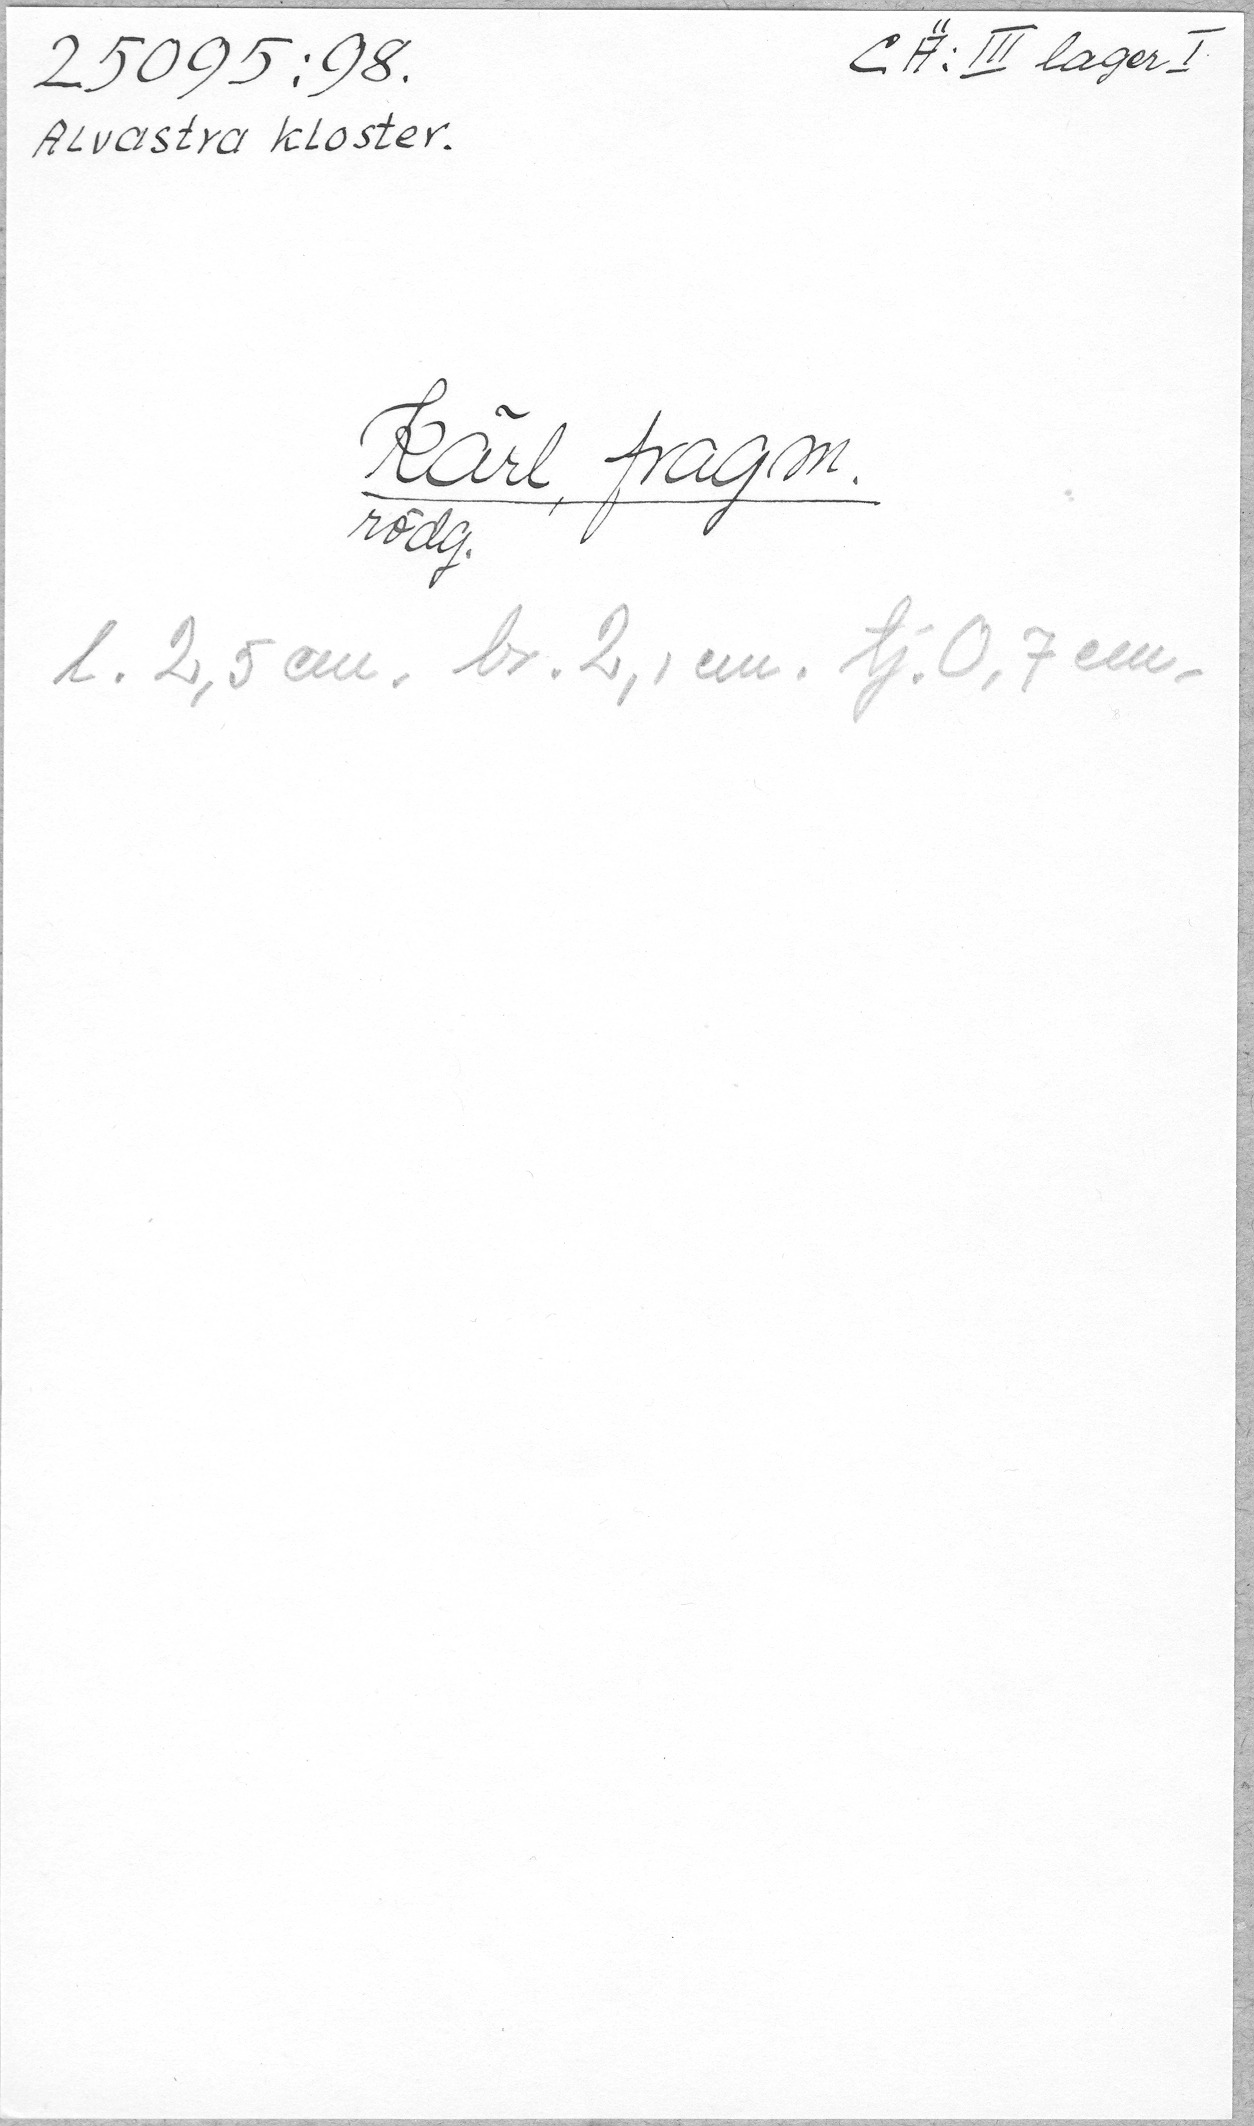 25095:98.
CÄ: III lager I
Alvastra kloster.
Kärl, fragm.
rödg.
l. 2,5 cm. br. 2,1 cm. tj. 0,7 cm.